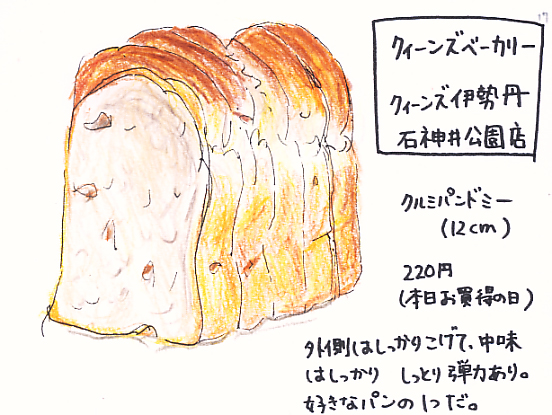 クィーンズベーカリー
クィーンズ伊勢丹
石神井公園店
クルミパンドミー
(12cm)
220円
(本日お買得の日)
外側はしっかりこげて、中味
はしっかり しっとり弾力あり。
好きなパンの1つだ。